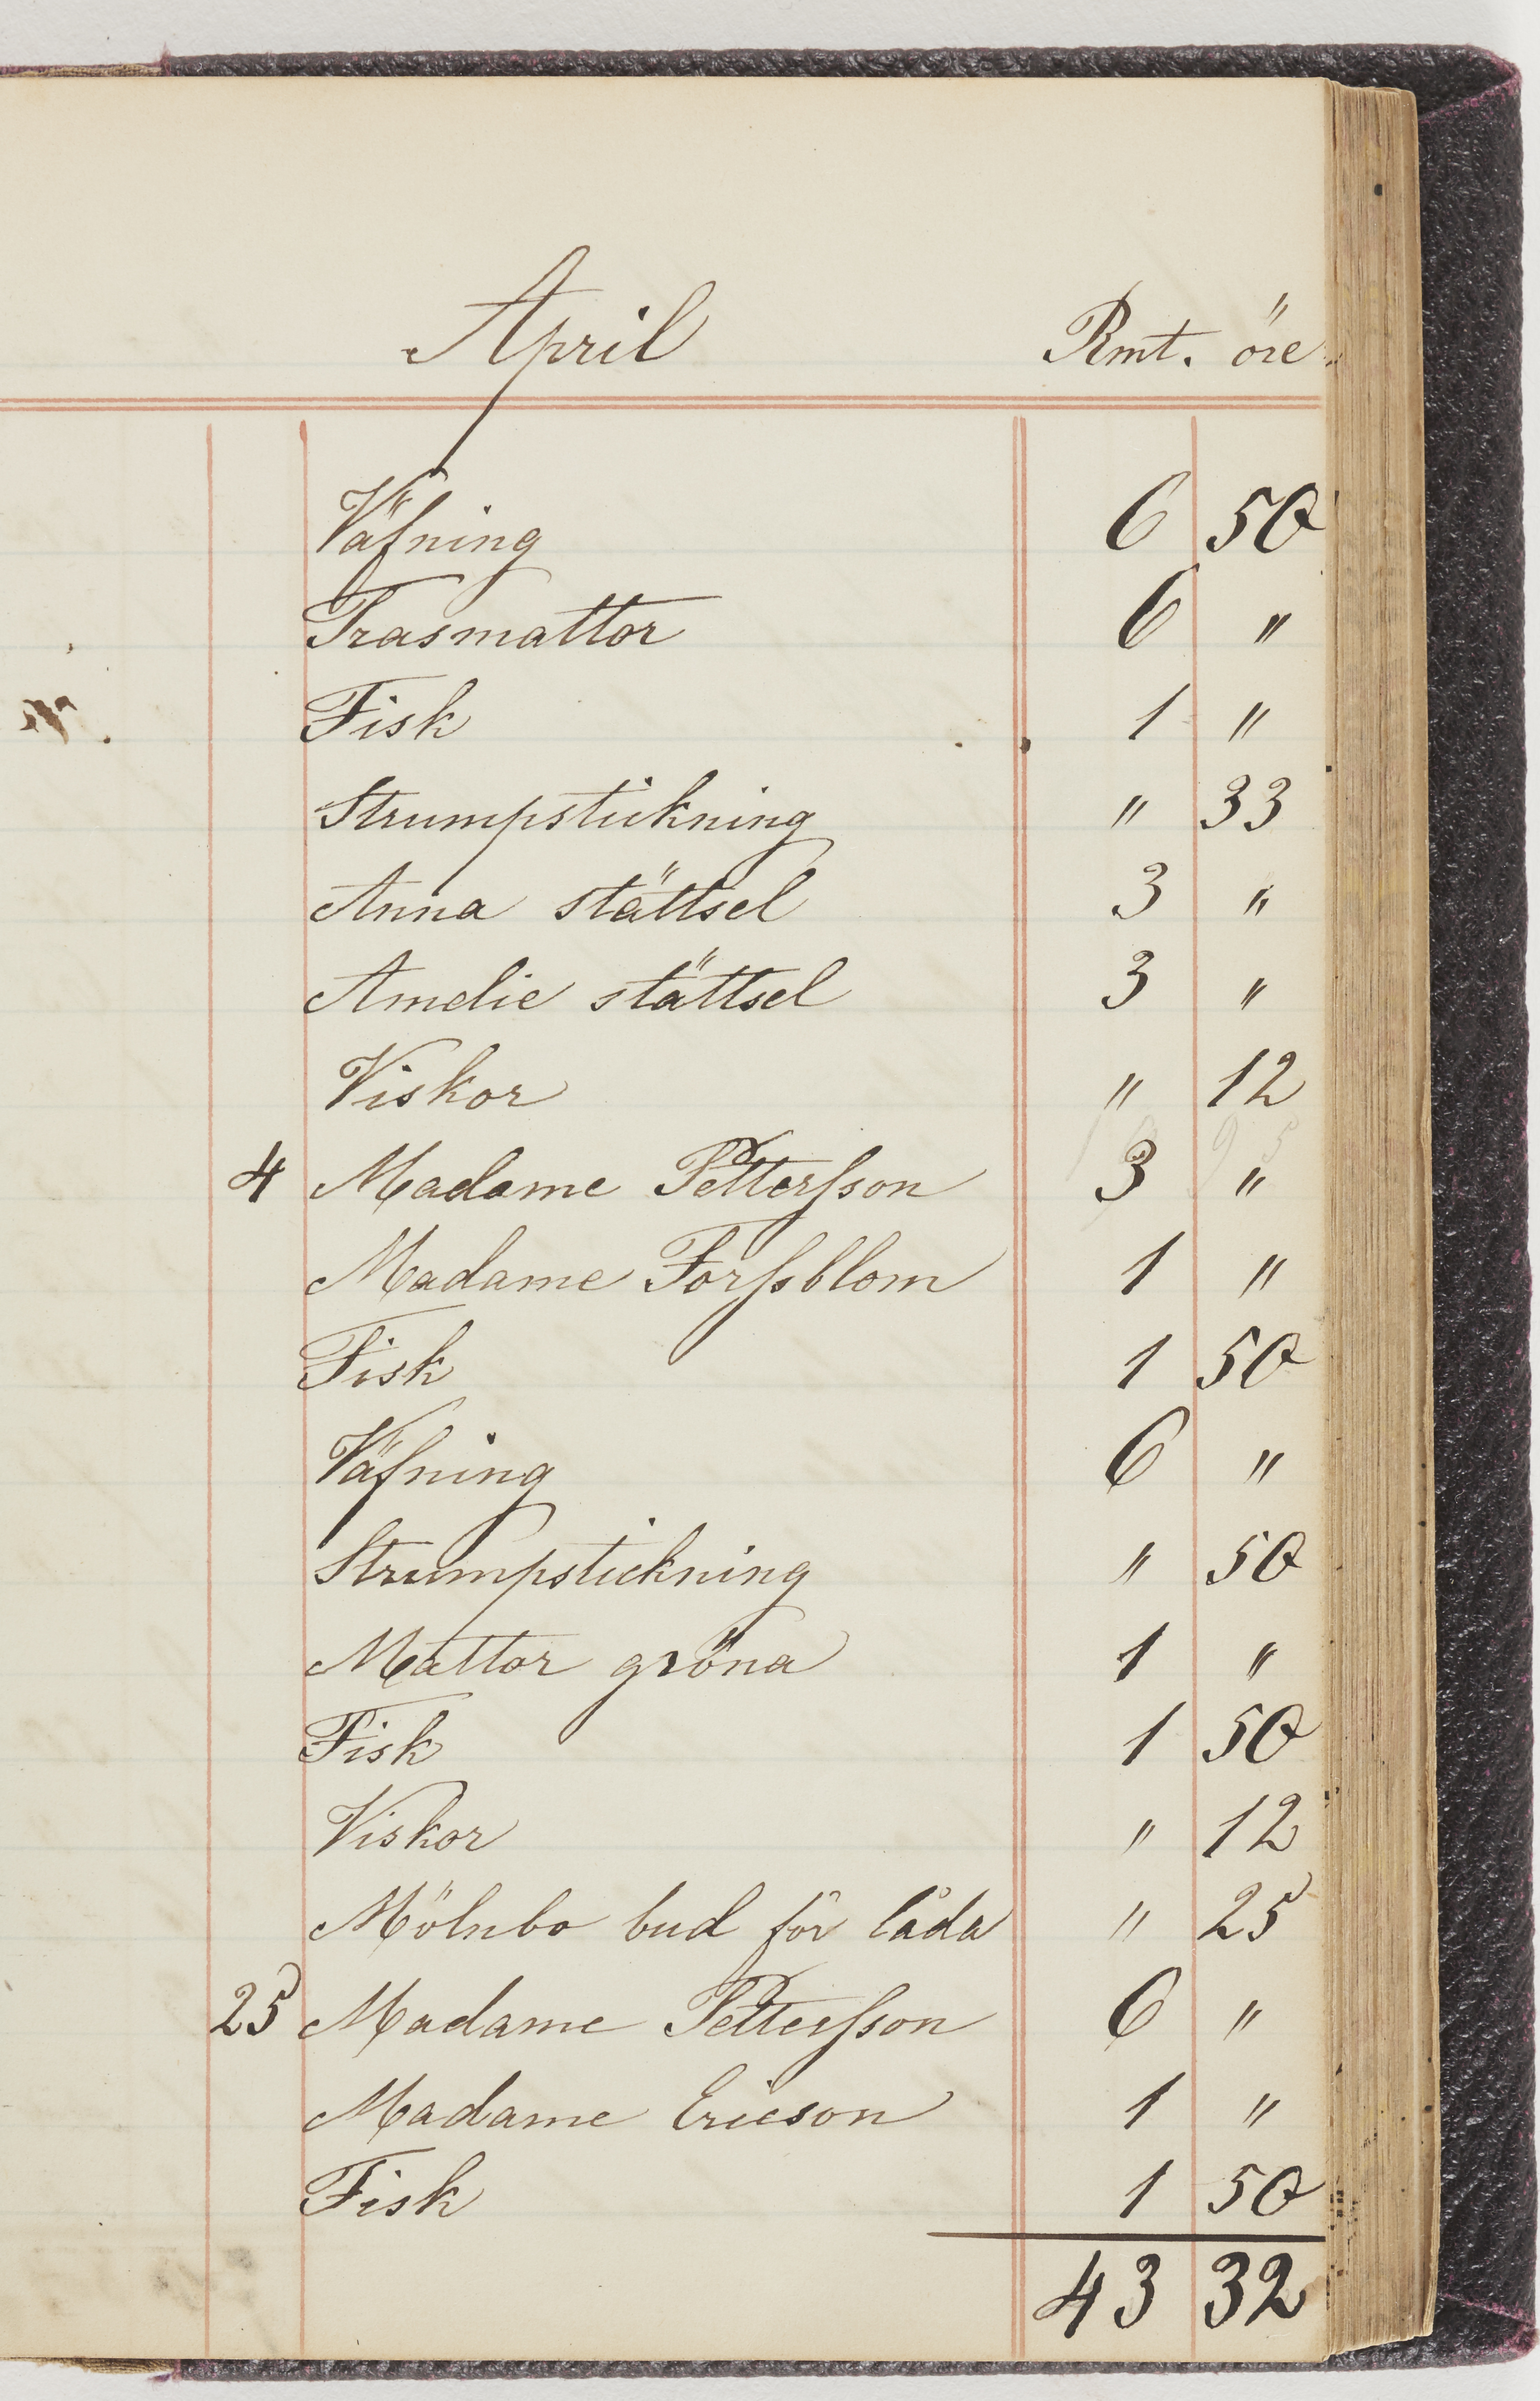 April Rmt. öre.
Väfning 6 50
Trasmattor 6 "
Fisk 1 "
Strumpstickning " 33
Anna stättsel 3 "
Amelie stättsel 3 "
Viskor " 12
4 Madame Pettersson 3 "
Madame Forssblom 1 "
Fisk 1 50
Väfning 6 "
Strumpstickning " 50
Mattor gröna 1 "
Fisk 1 50
Viskor " 12
Mölnbo bud för låda " 25
25 Madame Pettersson 6 "
Madame Ericson 1 "
Fisk 1 50
43 32